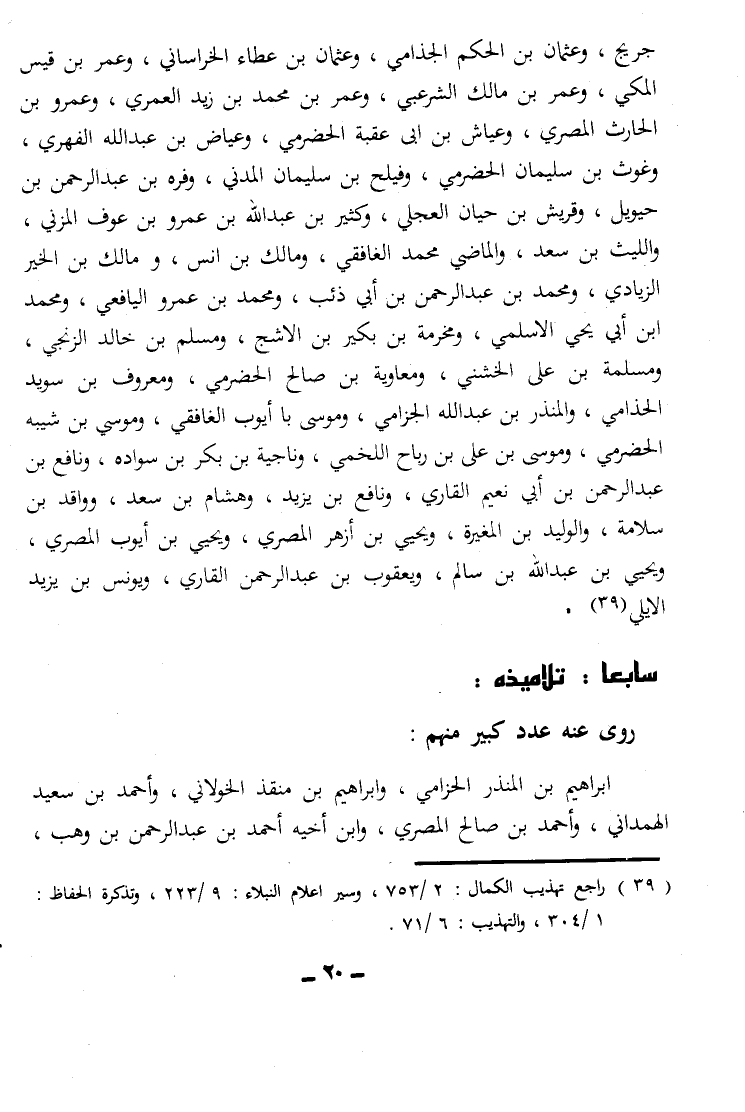 جريج ، وعثمان بن الحكم الجذامي ، وعثمان بن عطاء الخراساني ، وعمر بن قيس
المكي ، وعمر بن مالك الشرعبي ، وعمر بن محمد بن زيد العمري ، وعمرو بن
الحارث المصري ، وعياش بن ابى عقبة الحضرمي ، وعياض بن عبدالله الفهري ،
وغوث بن سليمان الحضرمي ، وفيلح بن سليمان المدني ، وفره بن عبدالرحمن بن
حيويل ، وقريش بن حيان العجلي ، وكثير بن عبدالله بن عمرو بن عوف المزني ،
والليث بن سعد ، والماضي محمد الغافقي ، ومالك بن انس ، و مالك بن الخير
الزيادي ، ومحمد بن عبدالرحمن بن أبي ذئب ، ومحمد بن عمرو اليافعي ، ومحمد
ابن أبي يحي الاسلمي ، ومخرمة بن بكير بن الاشج ، ومسلم بن خالد الزنجي ،
ومسلمة بن على الخشني ، ومعاوية بن صالح الحضرمي ، ومعروف بن سويد
الحذامي ، والمنذر بن عبدالله الجزامي ، وموسى با أيوب الغافقي ، وموسي بن شيبه
الحضرمي ، وموسى بن على بن رباح اللخمي ، وناجية بن بكر بن سواده ، ونافع بن
عبدالرحمن بن أبي نعيم القاري ، ونافع بن يزيد ، وهشام بن سعد ، وواقد بن
سلامة ، والوليد بن المغيرة ، ويحيي بن أزهر المصري ، ويحيي بن أيوب المصري ،
ويحيي بن عبدالله بن سالم ، ويعقوب بن عبدالرحمن القاري ، ويونس بن يزيد
الايلي (٣٩) .
سابعا : تلاميذه :
روى عنه عدد كبير منهم :
ابراهيم بن المنذر الحزامي ، وابراهيم بن منقذ الخولاني ، وأحمد بن سعيد
الهمداني ، وأحمد بن صالح المصري ، وابن أخيه أحمد بن عبدالرحمن بن وهب ،
( ٣٩ ) راجع تهذيب الكمال : ٢ /٧٥٣ ، وسير اعلام النبلاء : ٩ /٢٢٣ ، وتذكرة الحفاظ :
١ /٣٠٤ ، والتهذيب : ٦ /٧١ .
ـ ٢٠ ـ